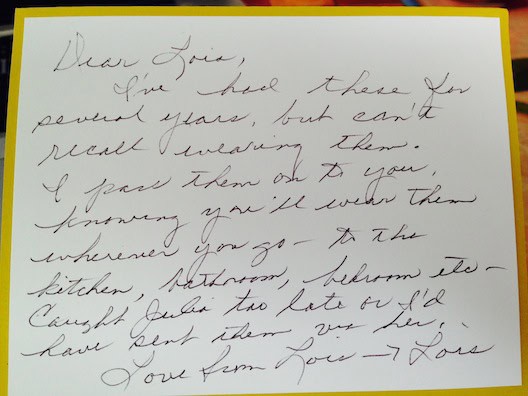 Dear Lois,
I've had these for
several years, but can't
recall wearing them.
I pass them on to you,
knowing you'll wear them
wherever you go - to the
kitchen, bathroom, bedroom etc -
Caught Julia too late or I'd
have sent them via her.
Love from Lois → Lois